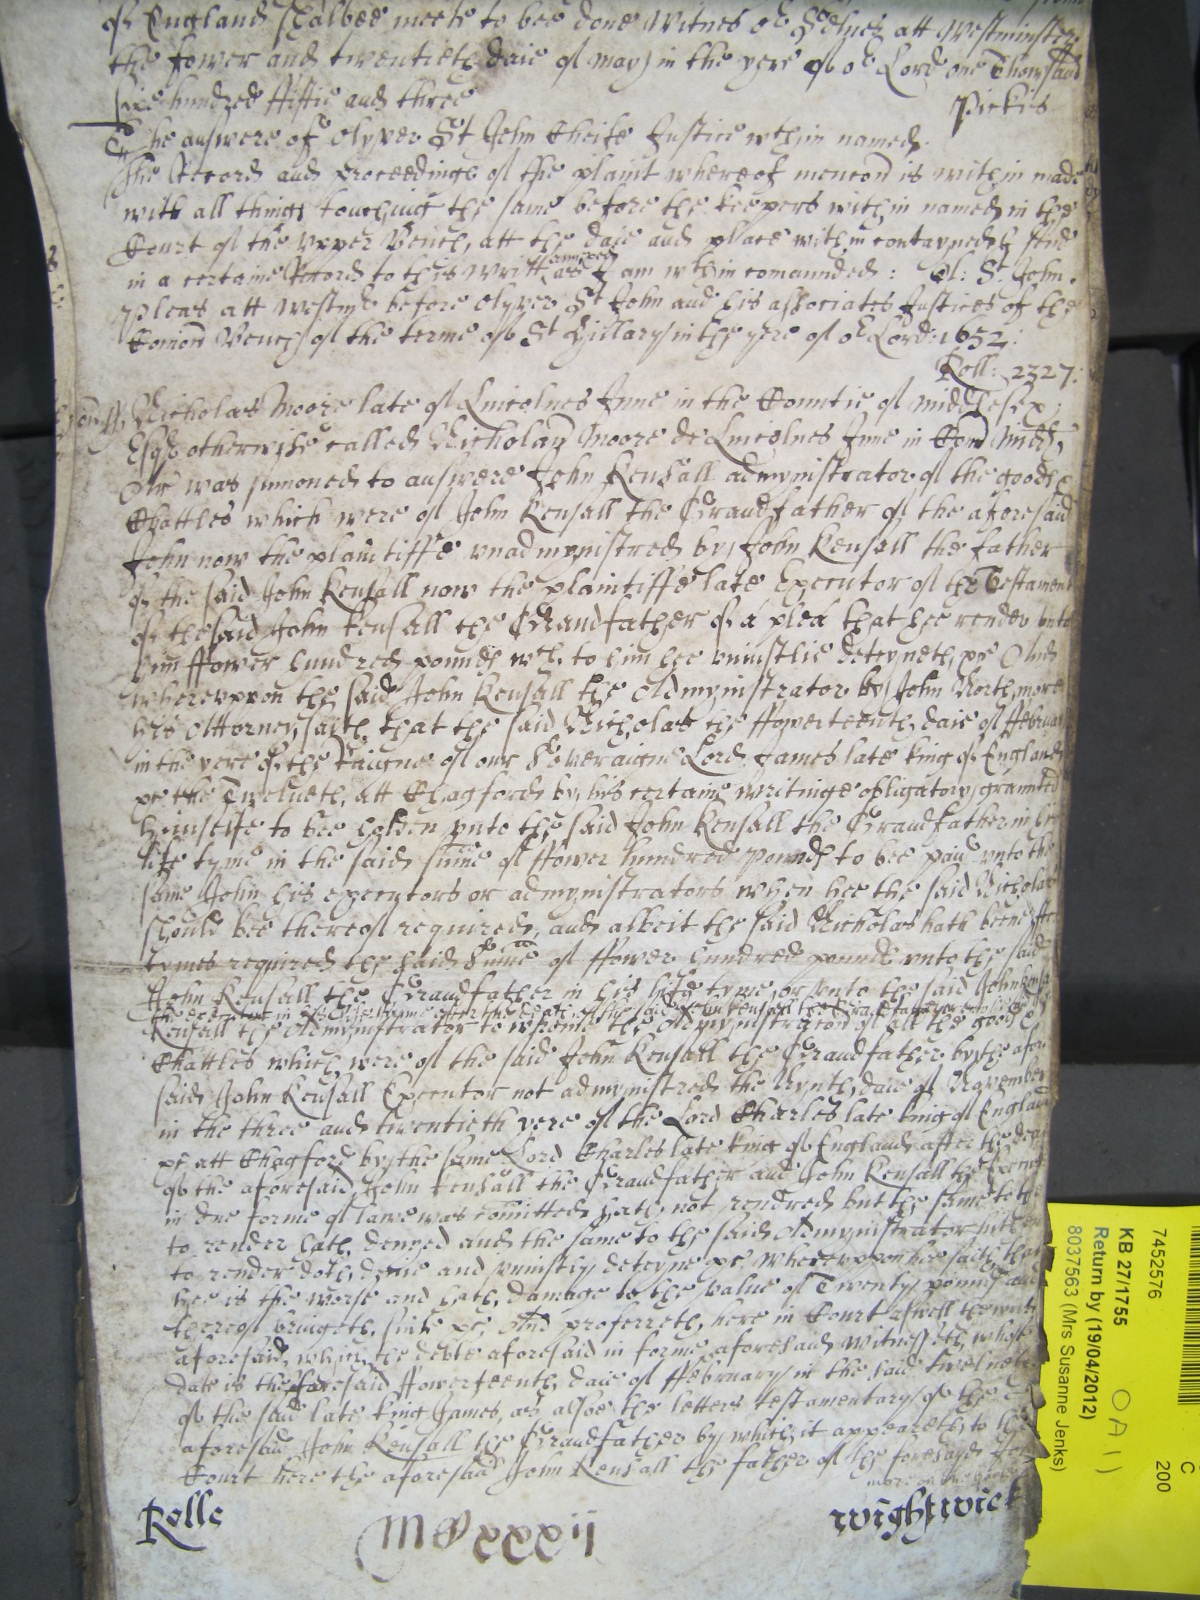 of England shalbee meete to bee done Witnes or Selues att Westminster
the fower and twentieth daie of May in the yere of or Lord one Thowsand
six hundred fiftie and three Pickis
The answere of Olyver St John Cheife Justice wthin named.
The Record and proceedinge of the plaint whereof mencon is within made
with all things touching the same before the keepers within named in the
Court of the Upper Bench, att the daie and place within contayned I send
in a certaine Record to this writt annexed as I am wthin comaunded: Ol: St. John.
Pleas att Westmr before Olyver St John and his associates Justices of the
Comon Bench of the terme of St Hillary in the yere of or Lord: 1652:
Roll: 2327:
Nicholas Moore late of Lincolnes Inne in the Countie of Middlesex,
Esqr otherwise called Nicholaus Moore de Lincolnes Inne in Com Midd,
Ar was sumoned to answere John Kensall administrator of the goods &
Chattles which were of John Kensall the Grandfather of the aforesaid
John now the plaintiffe unadmynistred by John Kensall the father
of the said John Kensall now the plaintiffe late Executor of the Testament
of the said John Kensall the Grandfather of a plea that hee render unto
him ffower hundred pounds wch to him hee uniustlie deteyneth, &c And
whereuppon the said John Kensall the Admynistrator by John Northmore
his Attorney saith that the said Nicholas the ffowerteenth daie of ffebruary
in the yere of the Raigne of our Soveraigne Lord James late king of England
&c the Twelueth, att Chagford by his certaine writinge obligatory graunted
himselfe to bee holden unto the said John Kensall the Grandfather in his
life tyme in the said sume of ffower hundred pounds to bee paid unto the
same John his executors or admynistrators when hee the said Nicholas
should bee thereof required, and albeit the said Nicholas hath beene often
tymes required the said sume of ffower hundred pounds unto the said
John Kensall the Grandfather in his life tyme or unto the said John Kensall
the executor in his life tyme after the death of the said John Kensall the Grandfather
Kensall the Admynistrator to whome the Admynistracon of all the goods &
Chattles which were of the said John Kensall the Grandfather by the afore
said John Kensall Executor not admynistred the Nynth daie of November
in the three and twentieth yere of the Lord Charles late king of England
&c att Chagford by the same Lord Charles late king of England after the death
of the aforesaid John Kensall the Grandfather and John Kensall the Executor
in due forme of lawe was comitted hath not rendred but the same to them
to render hath denyed and the same to the said Admynistrator hitherto
to render doth denie and uniustly deteyne &c Whereuppon hee saith that
hee is the worse and hath damage to the value of Twenty pounds and
thereof bringeth suite &c And proferreth here in Court aswell the writing
aforesaid, which the debte aforesaid in forme aforesaid witnesseth whose
date is the aforesaid ffowerteenth daie of ffebruary in the said twelueth
of the said late king James, as alsoe the letters testamentary of the
aforesaid John Kensall the Grandfather by which it appeareth to the
Court here the aforesaid John Kensall the father of the foresayd John
more on the
Rolle Wightwick
MDxxxii
7452576
KB 27/1755
Return by (19/04/2012)
8037563 (Mrs Susanne Jenks)
C
200